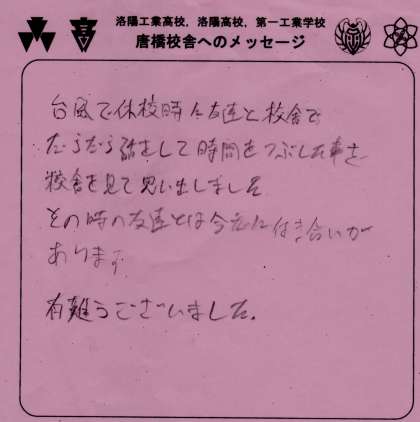 洛陽工業高校，洛陽高校，第一工業学校
唐橋校舎へのメッセージ
高
台風で休校時に友達と校舎で
だらだら話をして時間をつぶした事を
校舎を見て思い出しました
その時の友達とは今だに付き合いが
あります
有難うございました。